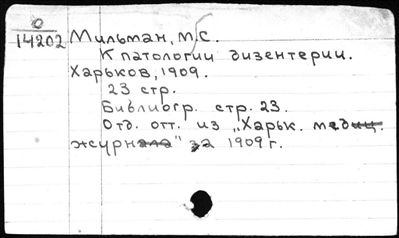 О
14202
Мильман, М.С.
К патологии дизентерии.
Харьков, 1909.
23 стр.
Библиогр. стр. 23.
Отд. отт. из „Харьк. медиц.
журнала" за 1909 г.